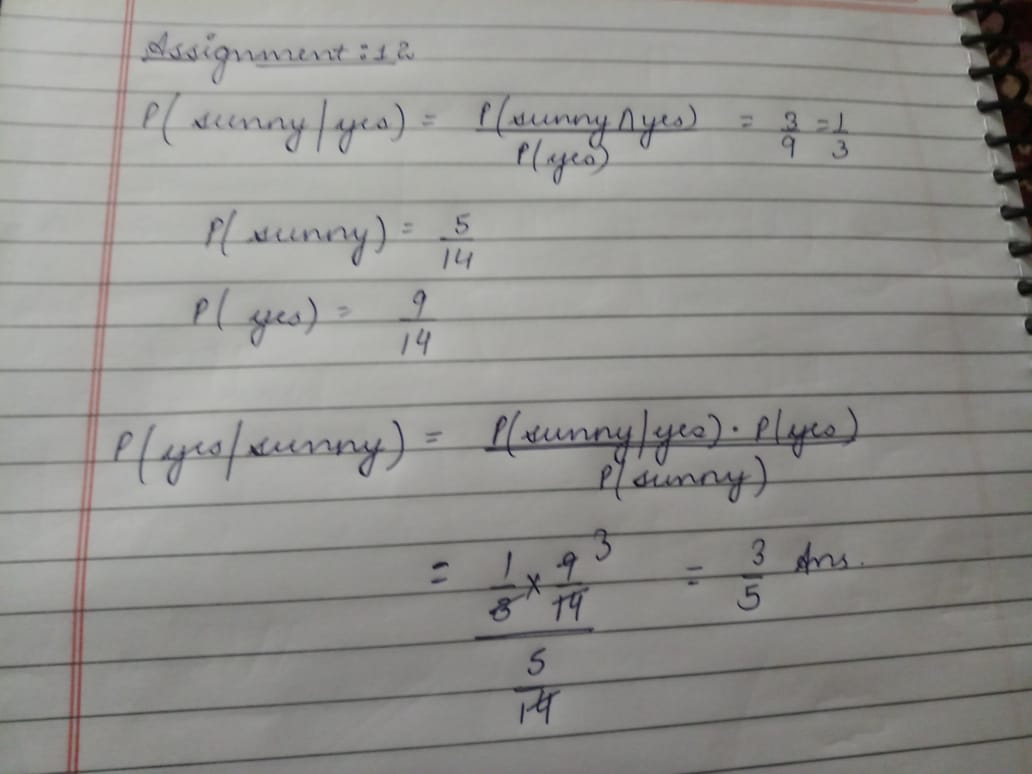 Assignment : 12
P( sunny | yes) = P(sunny ∩ yes) / P(yes) = 3/9 = 1/3
P( sunny) = 5/14
P( yes) = 9/14
P( yes | sunny) = P(sunny | yes) · P(yes) / P(sunny)
= 1/3 × 9/14 3 / 5/14 = 3/5 Ans.